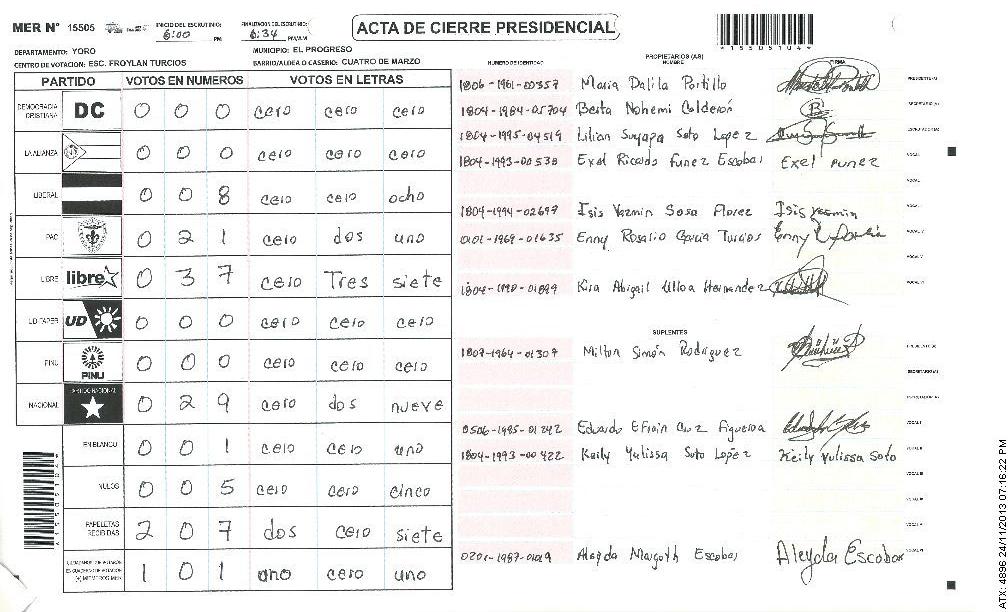 MER N° 15505 INICIO DEL ESCRUTINIO: 6:00 PM FINALIZACION DEL ESCRUTINIO: 6:34 PM/AM ACTA DE CIERRE PRESIDENCIAL
DEPARTAMENTO: YORO MUNICIPIO: EL PROGRESO
CENTRO DE VOTACION: ESC. FROYLAN TURCIOS BARRIO/ALDEA O CASERIO: CUATRO DE MARZO
PARTIDO VOTOS EN NUMEROS VOTOS EN LETRAS
DEMOCRACIA CRISTIANA DC 0 0 0 cero cero cero
LA ALIANZA 0 0 0 cero cero cero
LIBERAL 0 0 8 cero cero ocho
PAC 0 2 1 cero dos uno
LIBRE libre 0 3 7 cero Tres siete
UD FAPER UD 0 0 0 cero cero cero
PINU PINU 0 0 0 cero cero cero
NACIONAL 0 2 9 cero dos nueve
EN BLANCO 0 0 1 cero cero uno
NULOS 0 0 5 cero cero cinco
PAPELETAS RECIBIDAS 2 0 7 dos cero siete
1 0 1 uno cero uno
NUMERO DE IDENTIDAD PROPIETARIOS (AS) NOMBRE FIRMA
1806-1961-00357 Maria Dalila Portillo PRESIDENTE(A)
1804-1984-05704 Berta Nohemi Calderón B SECRETARIO(A)
1804-1995-04519 Lilian Suyapa Soto Lopez ESCRUTADOR(A)
1804-1993-00538 Exel Ricardo Funez Escobar Exel Funez VOCAL I
1804-1994-02697 Isis Yazmin Sosa Florez Isis Yasmin
0101-1969-01635 Enny Rosario Garcia Turcios
1804-1990-01899 Kira Abigail Ulloa Hernandez
SUPLENTES
1807-1964-01307 Milton Simón Rodriguez PRESIDENTE(A)
SECRETARIO(A)
ESCRUTADOR(A)
0506-1995-01242 Eduardo Efrain Cruz Figueroa VOCAL I
1804-1993-00422 Keily Yulissa Soto Lopez Keily Yulissa Soto VOCAL II
VOCAL III
0201-1987-01019 Aleyda Margoth Escobar Aleyda Escobar
15505104
ATX: 4896 24/11/2013 07:16:22 PM